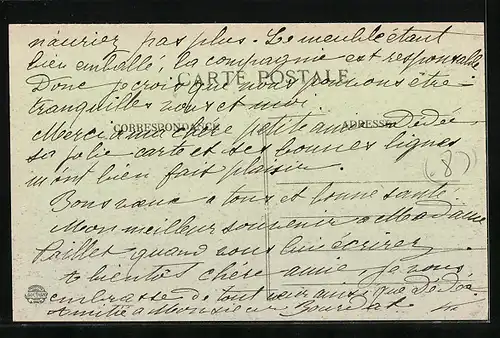 n'auriez pas plus. Le meuble étant
bien emballé, la compagnie est responsable
CARTE POSTALE
Donc je crois que nous pouvons être
tranquilles vous et moi.
CORRESPONDANCE
ADRESSE
Merci à ma petite amie Dédée
sa jolie carte et ses bonnes lignes
m'ont bien fait plaisir.
(8)
Bons vœux à tous et bonne santé
Mon meilleur souvenir à Madame
Paillet quand vous lui écrirez.
A bientôt chère amie, je vous
embrasse de tout cœur ainsi que Dédée
Amitié à Monsieur Bourdat